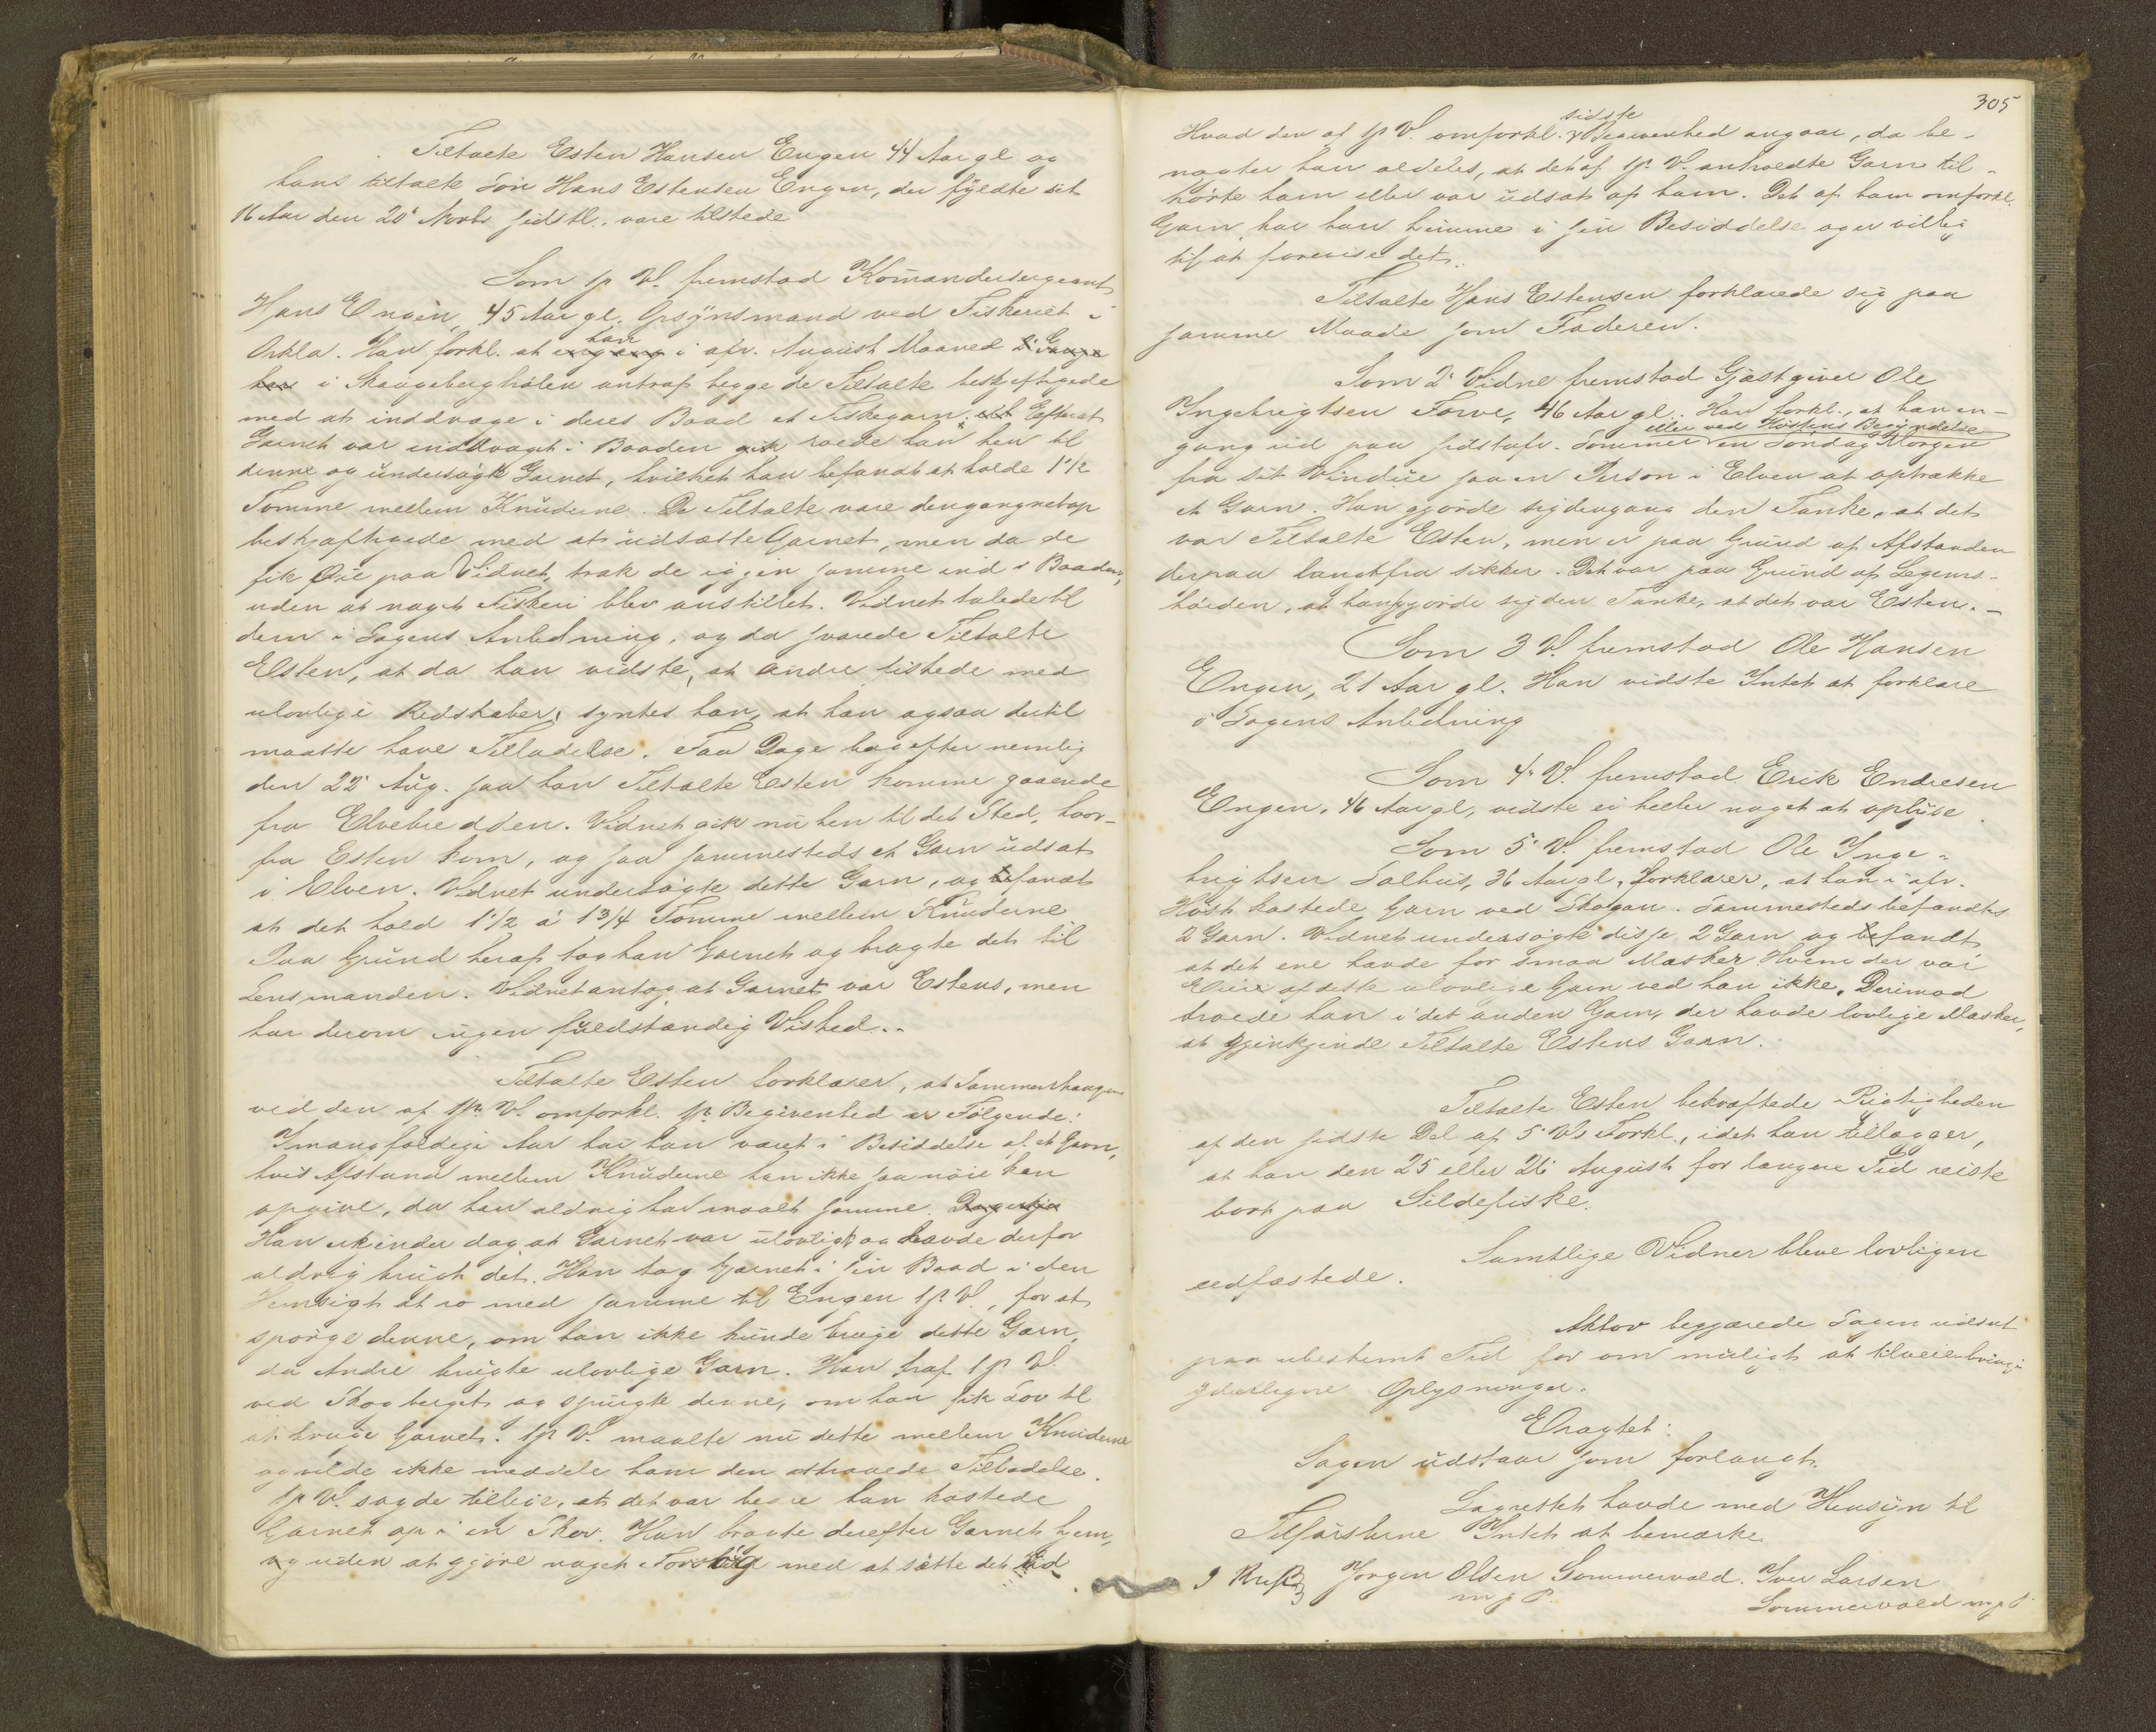 Tiltalte Esten Hansen Engen 44 Aar gl og
hans tiltalte Søn Hans Estensen Engen, der fyldte sit
16 Aar den 20de Novbr sidstl., vare tilstede
Som 1ste V. fremstod Komandersergeant
Hans Engen, 45 Aar gl. Opsynsmand ved Fiskeriet i
Orkla. Han forkl. at han i afv. August Maaned
i Skaugeberghølen antraf begge de Tiltalte beskjeftigede
med at inddrage i deres Baad et Fiskegarn. Efterat
Garnet var inddraget i Baaden roede han hen til
denne og undersøgte Garnet, hvilket han befandt at holde 1 1/2
Tomme mellem Knuderne. De Tiltalte vare dengang netop
beskjæftigede med at udsætte Garnet, men da de
fik Øie paa Vidnet, trak de iggen samme ind i Baaden,
uden at noget Fiskeri blev anstillet. Vidnet talede til
dem i Sagens Anledning, og da svarede Tiltalte
Esten, at da han vidste, at andre fiskede med
ulovlige Redskaber, syntes han, at han ogsaa dertil
maatte have Tilladelse. Faa Dage bagefter nemlig
den 22de Aug. saa han Tiltalte Esten komme gaaende
fra Elvebredden. Vidnet gik nu hen til det Sted, hvor-
fra Esten kom, og saa sammesteds et Garn udsat
i Elven. Vidnet undersøgte dette Garn, og befandt
at det hold 1 1/2 à 1 3/4 Tomme mellem Knuderne
Paa Grund heraf tog han Garnet og bragte det til
Lensmanden. Vidnet antog at Garnet var Estens, men
har derom ingen fuldstændig Vished..
Tiltalte Esten forklarer, at Sammenhængen
ved den af 1ste V. omforkl. 1ste Begivenhed er Følgende:
I mangfoldige Aar har han været i Besiddelse af et Garn,
hvis Afstand mellem Knuderne han ikke saa nøie kan
opgive, da han aldrig har maalt samme.
Han erkjender dog, at Garnet var ulovligt og havde derfor
aldrig brugt det. Han tog Garnet i sin Baad i den
Hensigt at ro med samme til Engen 1ste V., for at
spørge denne, om han ikke kunde bruge dette Garn,
da Andre brugte ulovlige Garn. Han traf 1ste V.
ved Skogberget og spurgte denne, om han fik Lov til
at bruge Garnet. 1ste V. maalte nu dette mellem Knuderne
og vilde ikke meddele ham den attraaede Tilladelse.
1ste V. sagde tillige, at det var bedre han kastede
Garnet op i en Skov. Han bragte derefter Garnet hjem,
og uden at gjøre noget Forsøg med at sætte det ud.
305
Hvad den af 1ste V. omforkl. sidste Begivenhed angaar, da be-
nægter han aldeles, at det af 1ste V. antrædte Garn til-
hørte ham eller var udsat af ham. Det af ham omforkl.
Garn har han hjemme i sin Besiddelse og er villig
til at forevise det.
Tiltalte Hans Estensen forklarede sig paa
samme Maade som Faderen.
Som 2det Vidne fremstod Gjæstgiver Ole
Ingebrigtsen Forve, 46 Aar gl. Han forkl., at han en-
gang ud paa sidstafv. Sommer eller ved Høstens Begyndelse en Søndag Morgen
fra sit Vindue saa en Person i Elven at optrække
et Garn. Han gjorde sig dengang den Tanke, at det
var Tiltalte Esten, men er paa Grund af Afstanden
derpaa langtfra sikker. Det var paa Grund af Legems-
høiden, at han gjorde sig den Tanke, at det var Esten.-
Som 3 V. fremstod Ole Hansen
Engen, 21 Aar gl. Han vidste Intet at forklare
i Sagens Anledning
Som 4de V. fremstod Erik Endresen
Engen, 46 Aar gl, vidste ei heller noget at oplyse.
Som 5te V. fremstod Ole Inge-
brigtsen Solhus, 36 Aar gl, forklarer, at han i afv.
Høst kastede Garn ved Skogan. Sammesteds befandtes
2 Garn. Vidnet undersøgte disse 2 Garn og befandt
at det ene havde for smaa Masker. Hvem der var
Eier af dette ulovlige Garn ved han ikke. Derimod
troede han i det anden Garn, der havde lovlige Masker,
at gjenkjende Tiltalte Estens Garn.
Tiltalte Esten bekræftede Rigtigheden
af den sidste Del af 5te Vs Forkl., idet han tillægger,
at han den 25 eller 26de August for længere Tid reiste
bort paa Sildefiske.
Samtlige Vidner bleve lovligen
eedfæstede.
Aktor begjærede Sagen udsat
paa ubestemt Tid for om muligt at tilveiebringe
yderligere Oplysninger.
Eragtet:
Sagen udstaar som forlangt.
Lagrettet havde med Hensyn til
Tilførslerne Intet at bemærke
Jørgen Olsen Sommervold. Iver Larsen
m p P. Sommervold m p P